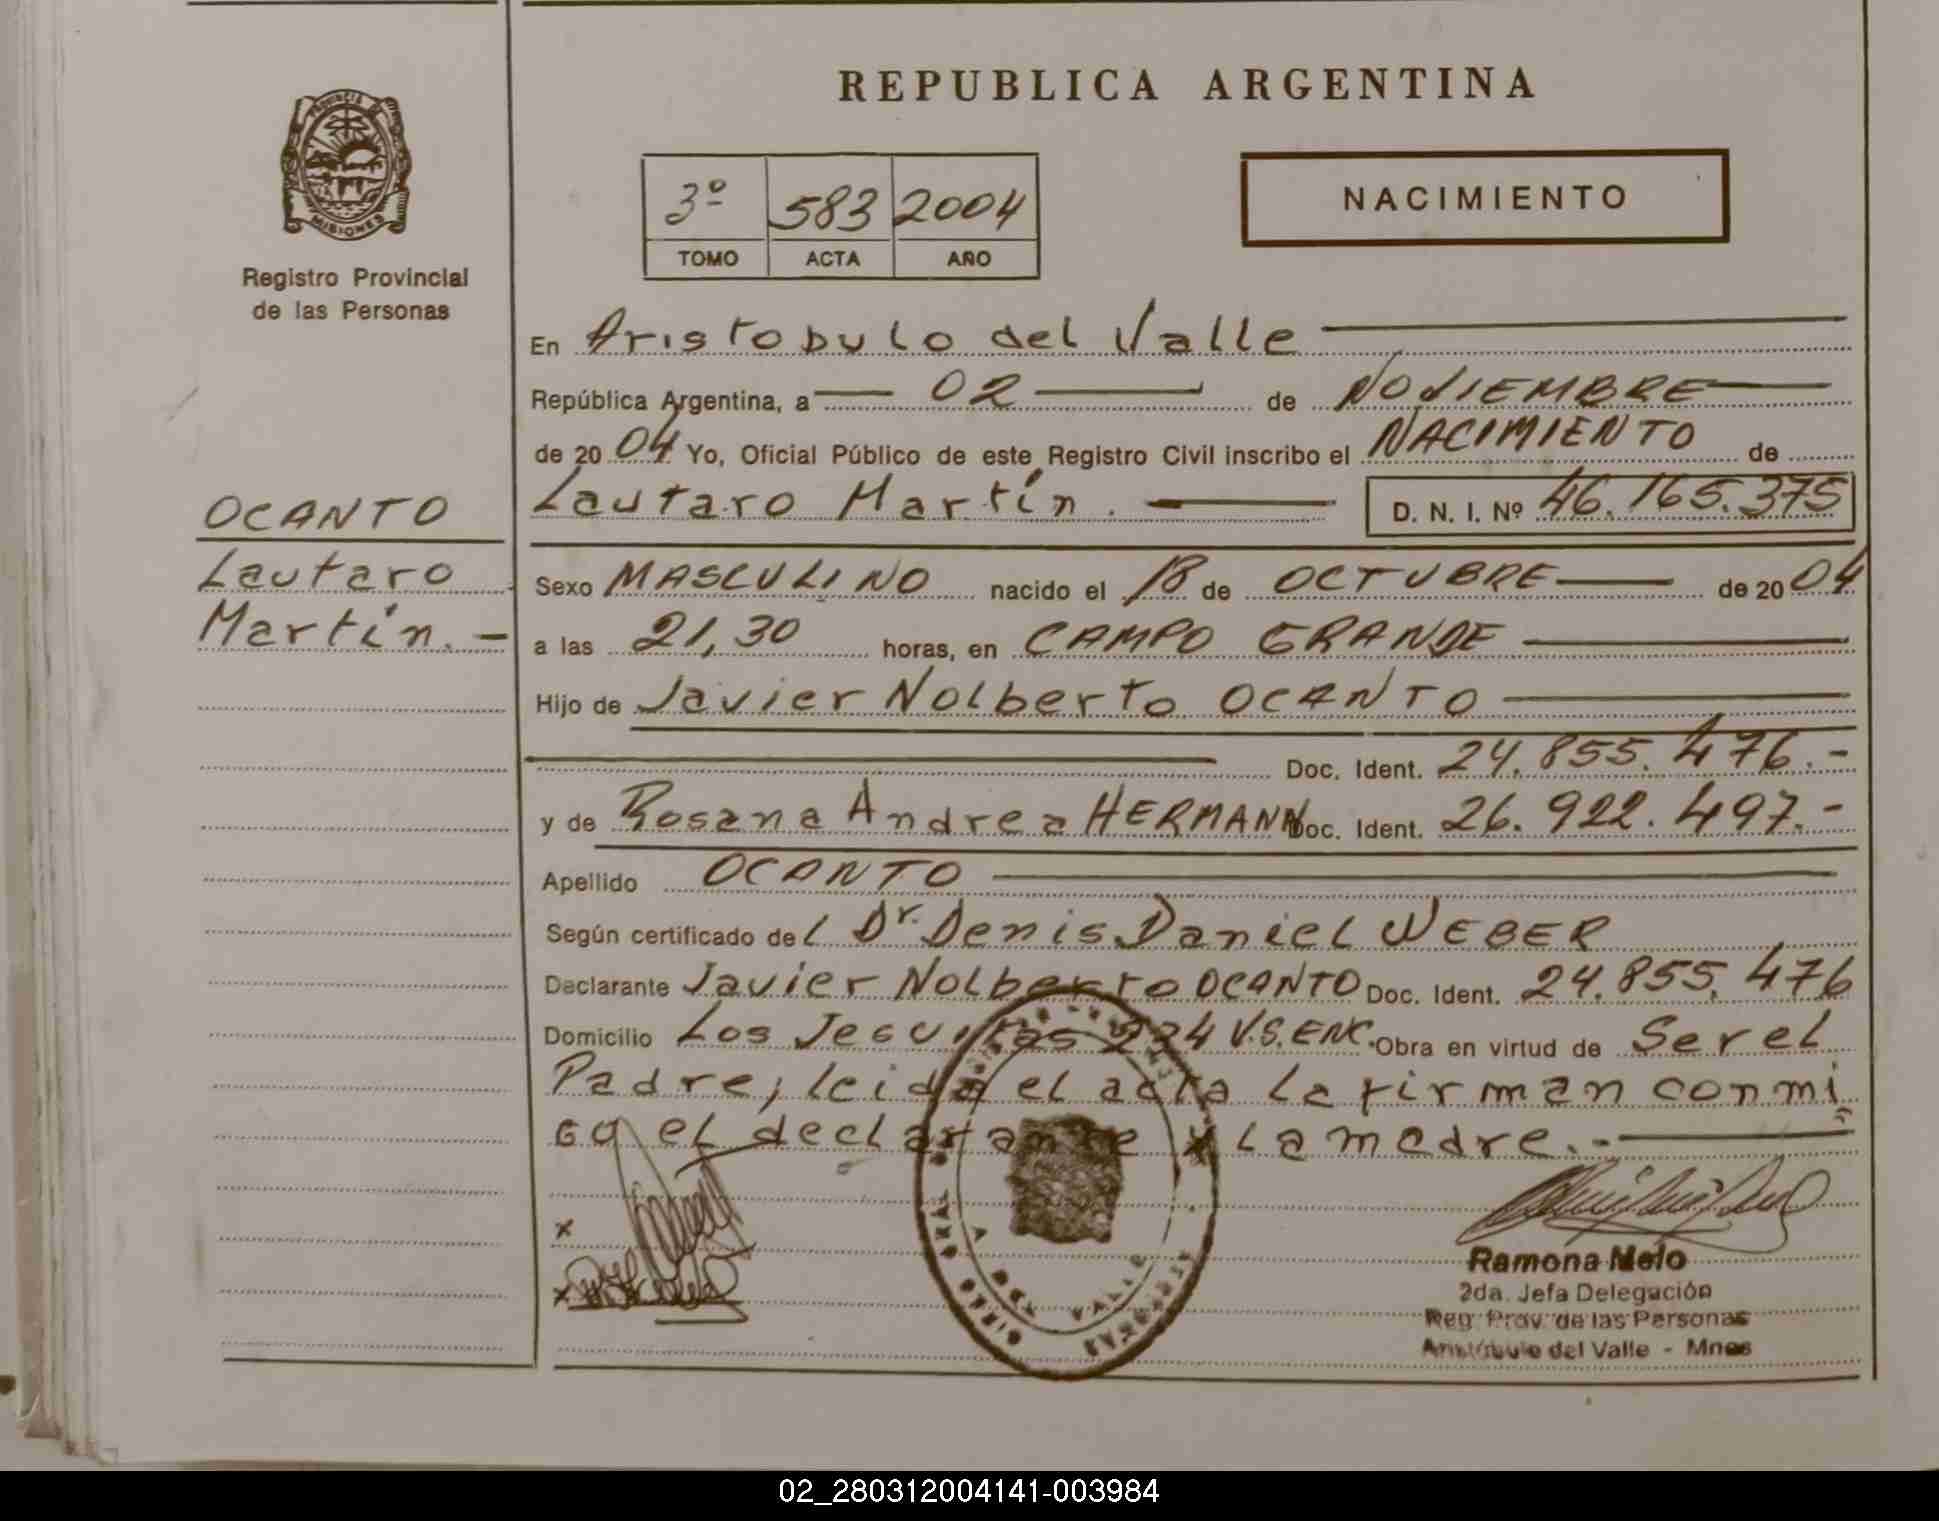 REPUBLICA ARGENTINA
PROVINCIA DE
MISIONES
Registro Provincial
de las Personas
3º 583 2004
TOMO ACTA AÑO
NACIMIENTO
OCANTO
Lautaro
Martín.-
En Aristobulo del Valle
República Argentina, a 02 de NOVIEMBRE
de 2004 Yo, Oficial Público de este Registro Civil inscribo el NACIMIENTO de
Lautaro Martín. D. N. I. Nº 46.165.375
Sexo MASCULINO nacido el 18 de OCTUBRE de 2004
a las 21,30 horas, en CAMPO GRANDE
Hijo de Javier Nolberto OCANTO
Doc. Ident. 24.855.476.-
y de Rosana Andrea HERMANN Doc. Ident. 26.922.497.-
Apellido OCANTO
Según certificado del Dr. Denis Daniel WEBER
Declarante Javier Nolberto OCANTO Doc. Ident. 24.855.476
Domicilio Los Jesuitas 224 V.S.ENC. Obra en virtud de Ser el
Padre, leida el acta la firman conmi
go el declarante y la madre.-
x
x
VALLE
Ramona Melo
2da. Jefa Delegación
Reg. Prov. de las Personas
Aristóbulo del Valle - Mnes
02_280312004141-003984